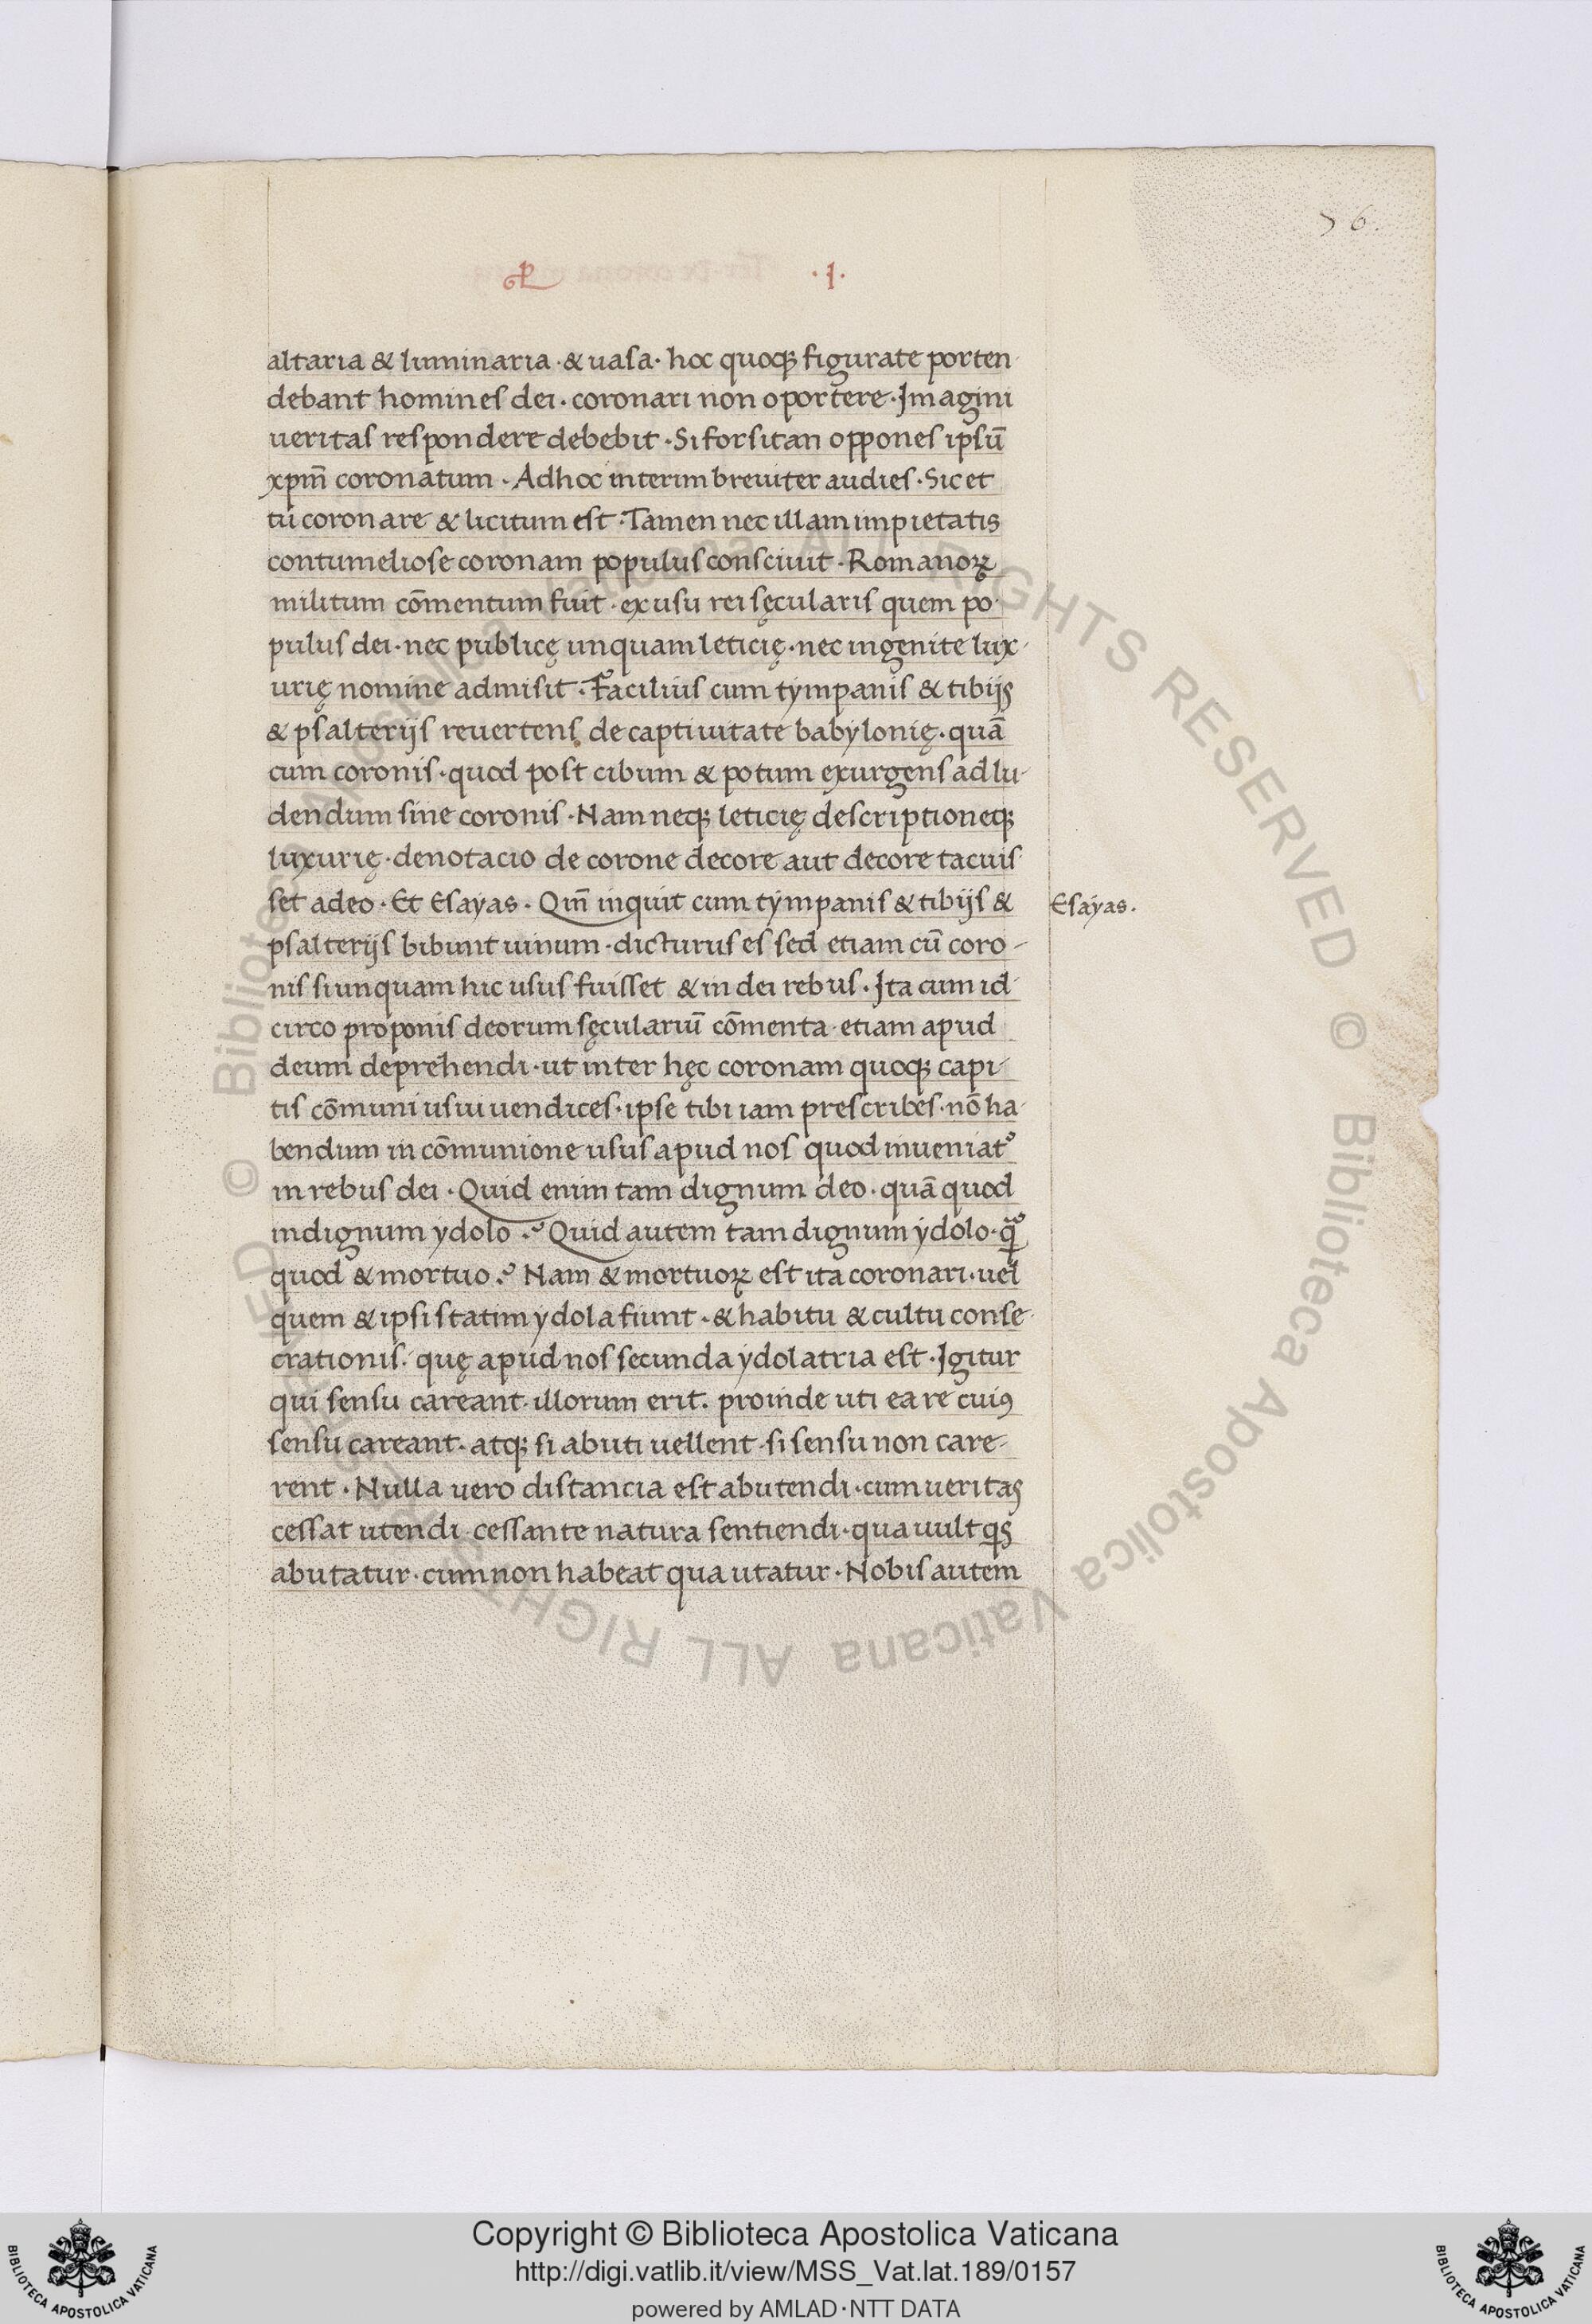 76.
.I.
altaria & luminaria · & uasa · hoc quoqꝫ figurate porten
debant homines dei · coronari non oportere · Imagini
ueritas respondere debebit · Si forsitan oppones ipsū
xpm̄ coronatum · Adhoc interim breuiter audies · Sic et
tu coronare & licitum est · Tamen nec illam impietatis
contumeliose coronam populus consciuit · Romanoꝝ
militum cōmentum fuit · ex usu rei sęcularis quem po-
pulus dei · nec publicę unquam leticię · nec ingenite lux-
urię nomine admisit · Facilius cum tympanis & tibijs
& psalterijs reuertens de captiuitate babylonię · quā
cum coronis · quod post cibum & potum exurgens ad lu-
dendum sine coronis · Nam neqꝫ leticię descriptio neqꝫ
luxurię · denotacio de corone decore aut decore tacuis-
set adeo · Et Esayas · Qm̄ inquit cum tympanis & tibijs &
Esayas.
psalterijs bibunt uinum · dicturus es sed etiam cū coro-
nis si unquam hic usus fuisset & in dei rebus · Ita cum id-
circo proponis deorum sęculariū cōmenta etiam apud
deum deprehendi · ut inter hęc coronam quoqꝫ capi-
tis cōmuni usui uendices · ipse tibi iam prescribes · nō ha-
bendum in cōmunione usus apud nos quod inueniat᷒
in rebus dei · Quid enim tam dignum deo · quā quod
indignum ydolo ? Quid autem tam dignum ydolo · q̄
quod & mortuo ? Nam & mortuoꝝ est ita coronari · uel
quem & ipsi statim ydola fiunt · & habitu & cultu conse-
crationis · quę apud nos secunda ydolatria est · Igitur
qui sensu careant · illorum erit · proinde uti ea re cuiꝯ
sensu careant · atqꝫ si abuti uellent · si sensu non care-
rent · Nulla uero distancia est abutendi · cum ueritas
cessat utendi · cessante natura sentiendi · qua uult qs
abutatur · cum non habeat qua utatur · Nobis autem
© Biblioteca Apostolica Vaticana ALL RIGHTS RESERVED © Biblioteca Apostolica Vaticana ALL RIGHTS RESERVED
Copyright © Biblioteca Apostolica Vaticana
http://digi.vatlib.it/view/MSS_Vat.lat.189/0157
powered by AMLAD·NTT DATA
BIBLIOTECA APOSTOLICA VATICANA
BIBLIOTECA APOSTOLICA VATICANA